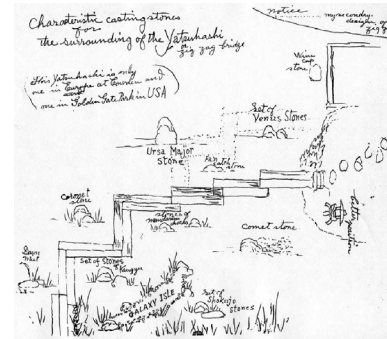 Characteristic casting stones
for
the surrounding of the Yatsuhashi
or
zig zag bridge
This Yatsuhashi is only
one in Europe at Cowden and
one in Golden Gate Park in USA
notice
my secondry
design of
zig z
Wine
cup
stone
Set of
Venus Stones
Ursa Major
stone
stone
Coronet
stone
stones of
Comet stone
Set of Stones
Kengyu
GALAXY ISLE
Set of
Shokujo
stones